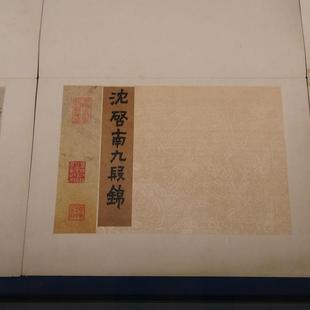 沈啓南九段錦